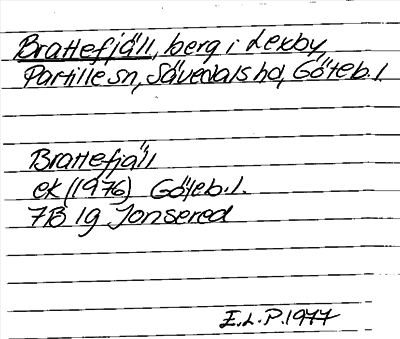 Brattefjäll, berg i Lexby,
Partille sn, Sävedals hd, Göteb.l.
Brattefjäll
ek (1976) Göteb.l.
7B 1g Jonsered
E.L.P.1977